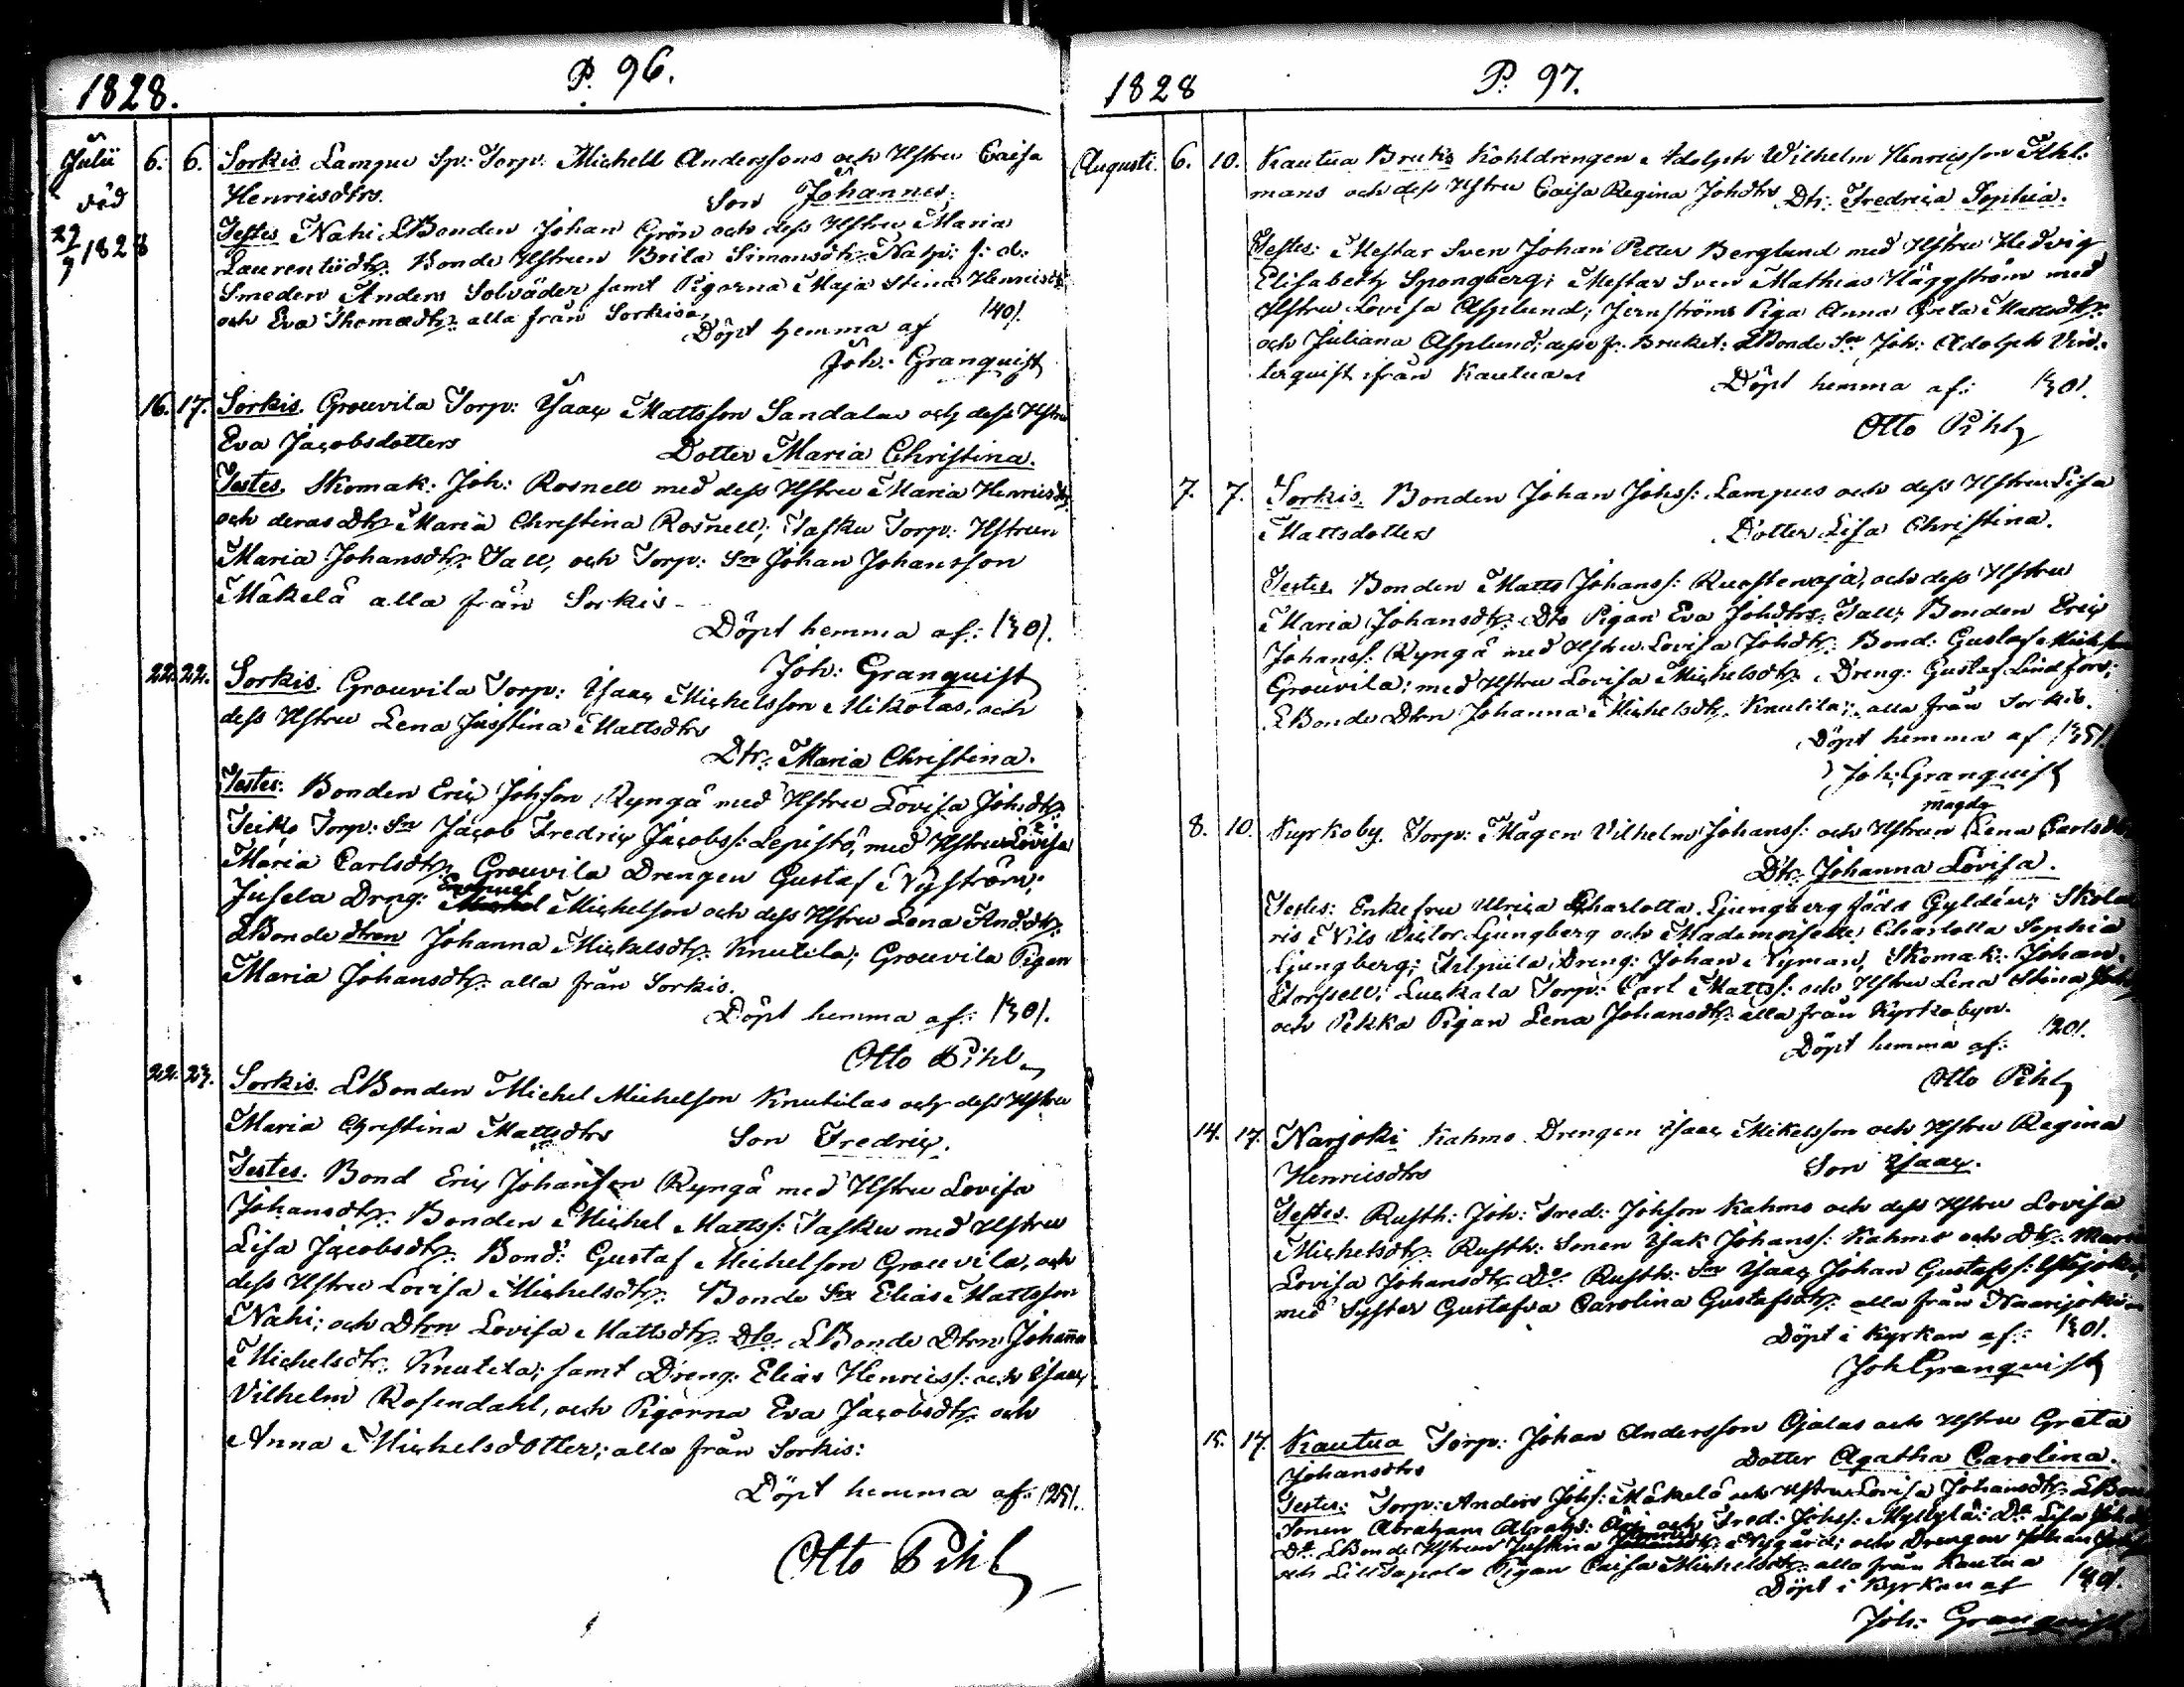 1828. P. 96.
Julii 6. 6. Sorkis Lampu Sp: Torp: Michell Anderssons och Hstru Caisa
död Henricsdtrs. Son Johannes.
27/7 1828 Testes Nahi LBonden Johan Grön och dess Hstru Maria
Laurentiidtr. Bonde Hstrun Brita Simonsdtr.
Smeden Anders Solväder samt Pigorna Maja Stina Henricsdr
och Eva Thomædtr. alla från Sorkis. /40/.
Döpt hemma af
Joh: Granquist
16. 17. Sorkis. Grouvila Torp: Isaac Mattsson Sandalas och dess Hstru
Eva Jacobsdotters Dotter Maria Christina.
Testes. Skomak: Joh: Rosnell med dess Hstru Maria Henricsdtr.
och deras Dtr Maria Christina Rosnell; Tasku Torp: Hstrun
Maria Johansdtr. Tall, och Torp: Sn Johan Johansson
Mäkelä alla från Sorkis.
Döpt hemma af: /30/.
Joh: Granquist
22. 22. Sorkis. Grouvila Torp: Isaac Michelsson Mikolas, och
dess Hstru Lena Justina Mattsdtrs
Dtr. Maria Christina.
Testes: Bonden Eric Johsson Ryngä med Hstru Lovisa Johsdtr.
Teiko Torp: Sn Jacob Fredric Jacobss: Lepistö, med Hstru Lovisa
Maria Carlsdtr. Grouvila Drengen Gustaf Nyström;
Jusela Dreng: Emanuel Michelson och dess Hstru Lena And:dtr.
LBonde dtren Johanna Michelsdtr. Knutila; Grouvila Pigan
Maria Johansdtr. alla från Sorkis.
Döpt hemma af: /30/.
Otto Pihl
22. 23. Sorkis. LBonden Michel Michelson Knutilas och dess Hstru
Maria Christina Mattsdtrs Son Fredric.
Testes. Bond Eric Johansson Ryngä med Hstru Lovisa
Johansdtr. Bonden Michel Mattss: Tasku med Hstru
Lisa Jacobsdtr. Bond: Gustaf Michelson Grouvila, och
dess Hstru Lovisa Michelsdtr. Bonde Sn Elias Mattsson
Nahi; och Dtrn Lovisa Mattsdtr. Dto. LBonde Dtrn Johanna
Michelsdtr. Knutila; samt Dreng: Elias Henricss: och Isaac
Vilhelm Rosendahl, och Pigorna Eva Jacobsdtr. och
Anna Michelsdotter; alla från Sorkis:
Döpt hemma af: /25/.
Otto Pihl
1828 P. 97.
Augusti. 6. 10. Kautua Bruks Kohldrengen Adolph Wilhelm Henricsson Ilkl:
mans och dess Hstru Caisa Regina Johdtrs Dtr. Fredrica Sophia.
Testes: Mestar Sven Johan Petter Berglund med Hstru Hedvig
Elisabeth Spongberg; Mestar Sven Mathias Häggström med
Hstru Lovisa Asplund; Jernströms Piga Anna Greta Mattsdtr.
och Juliana Asplund; desse fr. Bruket: LBonde Sn Joh: Adolph Vin-
terquist från Kautua Döpt hemma af: /30/.
Otto Pihl
7. 7. Sorkis. Bonden Johan Johss: Lampus och dess Hstru Lisa
Mattsdotters Dotter Lisa Christina.
Testes. Bonden Matts Johanss: Ruostenoja, och dess Hstru
Maria Johansdtr. Dto Pigan Eva Johdtr. Tall; Bonden Eric
Johanss: Ryngä med Hstru Lovisa Johdtr. Bond: Gustaf
Grouvila; med Hstru Lovisa Michelsdtr. Dreng: Gustaf Lindfors;
LBonde Dtrn Johanna Michelsdtr. Knutila; alla från Sorkis.
Döpt hemma af /35/.
Joh: Granquist
8. 10. Kyrkoby. Torp: Mågen Vilhelm Johanss: och Hstrun Lena Magdr Carlsdtr
Dtr. Johanna Lovisa.
Testes: Enkefru Ulrica Charlotta Ljungberg född Gyldén; Skola-
ris Nils Victor Ljungberg och Mademoiselle Charlotta Sophia
Ljungberg; Dreng: Johan Nyman, Skomak: Johan
Torsell; Luckala Torp: Carl Mattss: och Hstru Lena Stina
och Pekka Pigan Lena Johansdtr. alla från Kyrkobyn.
Döpt hemma af: /20/.
Otto Pihl
14. 17. Narjoki Kahmo Drengen Isaac Mikelsson och Hstru Regina
Henricsdtrs Son Isaac.
Testes. Rusth: Joh: Fred: Johsson Kahmo och dess Hstru Lovisa
Michelsdtr. Rusth: Sonen Isak Johanss: Kahmo och Dtr. Maria
Lovisa Johansdtr. Do. Rusth: Sn Isaac Johan Gustafss:
med Syster Gustafva Carolina Gustafsdtr. alla från Naarijoki
Döpt i Kyrkan af: /30/.
Joh Granquist
15. 17. Kautua Torp: Johan Andersson Ojalas och Hstru Greta
Johansdtrs Dotter Agatha Carolina.
Testes: Torp: Anders Johss: Mäkelä och Hstru Lovisa Johansdtr. LBonde
Sonen Abraham Abrahs: och Fred: Johss: Myllylä: Do Lisa
Do. LBonde Hstrun Justina Henricsdtr. Nygård; och Drengen Johan
och Lill Tapola Pigan Caisa Michelsdtr. alla från Kautua
Döpt i Kyrkan af /40/.
Joh: Granquist